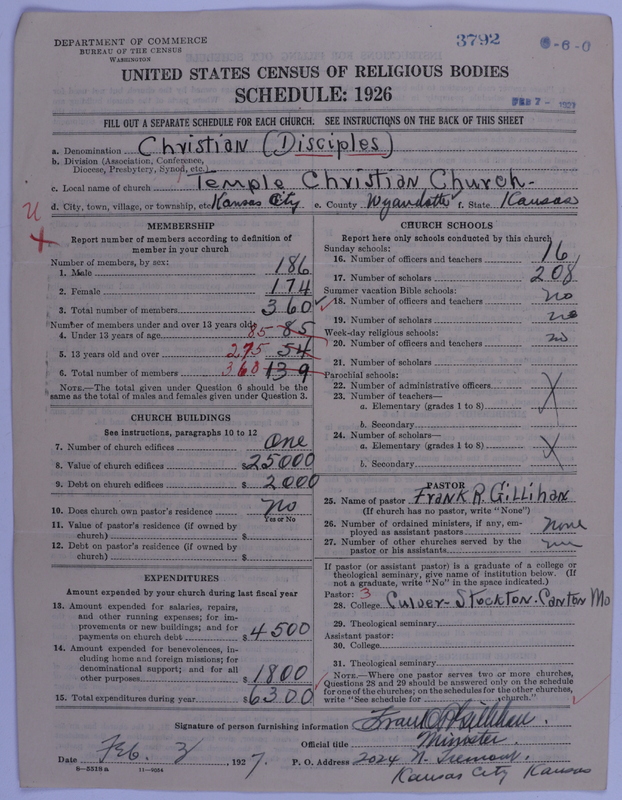 DEPARTMENT OF COMMERCE
BUREAU OF THE CENSUS
WASHINGTON
3792
6-6-0
UNITED STATES CENSUS OF RELIGIOUS BODIES
SCHEDULE: 1926
FEB 7 - 1927
FILL OUT A SEPARATE SCHEDULE FOR EACH CHURCH. SEE INSTRUCTIONS ON THE BACK OF THIS SHEET
a. Denomination Christian (Disciples)
b. Division (Association, Conference,
Diocese, Presbytery, Synod, etc.)
c. Local name of church Temple Christian Church-
d. City, town, village, or township, etc. Kansas City e. County Wyandotte f. State Kansas
MEMBERSHIP
Report number of members according to definition of
member in your church
Number of members, by sex:
1. Male 186
2. Female 174
3. Total number of members 360
Number of members under and over 13 years old:
4. Under 13 years of age 85 85
5. 13 years old and over 275 54
6. Total number of members 360 139
NOTE.—The total given under Question 6 should be the
same as the total of males and females given under Question 3.
CHURCH BUILDINGS
See instructions, paragraphs 10 to 12
7. Number of church edifices one
8. Value of church edifices $25000
9. Debt on church edifices $2000
10. Does church own pastor's residence no
Yes or No
11. Value of pastor's residence (if owned by
church) $
12. Debt on pastor's residence (if owned by
church) $
EXPENDITURES
Amount expended by your church during last fiscal year
13. Amount expended for salaries, repairs,
and other running expenses; for im-
provements or new buildings; and for
payments on church debt $4500
14. Amount expended for benevolences, in-
cluding home and foreign missions; for
denominational support; and for all
other purposes $1800
15. Total expenditures during year $6300
CHURCH SCHOOLS
Report here only schools conducted by this church
Sunday schools:
16. Number of officers and teachers 16
17. Number of scholars 208
Summer vacation Bible schools:
18. Number of officers and teachers no
19. Number of scholars no
Week-day religious schools:
20. Number of officers and teachers no
21. Number of scholars
Parochial schools:
22. Number of administrative officers
23. Number of teachers—
a. Elementary (grades 1 to 8)
b. Secondary
24. Number of scholars—
a. Elementary (grades 1 to 8)
b. Secondary
PASTOR
25. Name of pastor Frank R. Gillihan
(If church has no pastor, write "None")
26. Number of ordained ministers, if any, em-
ployed as assistant pastors none
27. Number of other churches served by the
pastor or his assistants
If pastor (or assistant pastor) is a graduate of a college or
theological seminary, give name of institution below. (If
not a graduate, write "No" in the space indicated.)
Pastor: 3
28. College Culver-Stockton. Canton Mo
29. Theological seminary
Assistant pastor:
30. College
31. Theological seminary
NOTE.—Where one pastor serves two or more churches,
Questions 28 and 29 should be answered only on the schedule
for one of the churches; on the schedules for the other churches,
write "See schedule for church."
Signature of person furnishing information Frank R Gillihan.
Official title Minister.
Date Feb. 3, 1927. P. O. Address 2024 N. Tremont.
Kansas City Kansas
8—5518a 11—9054